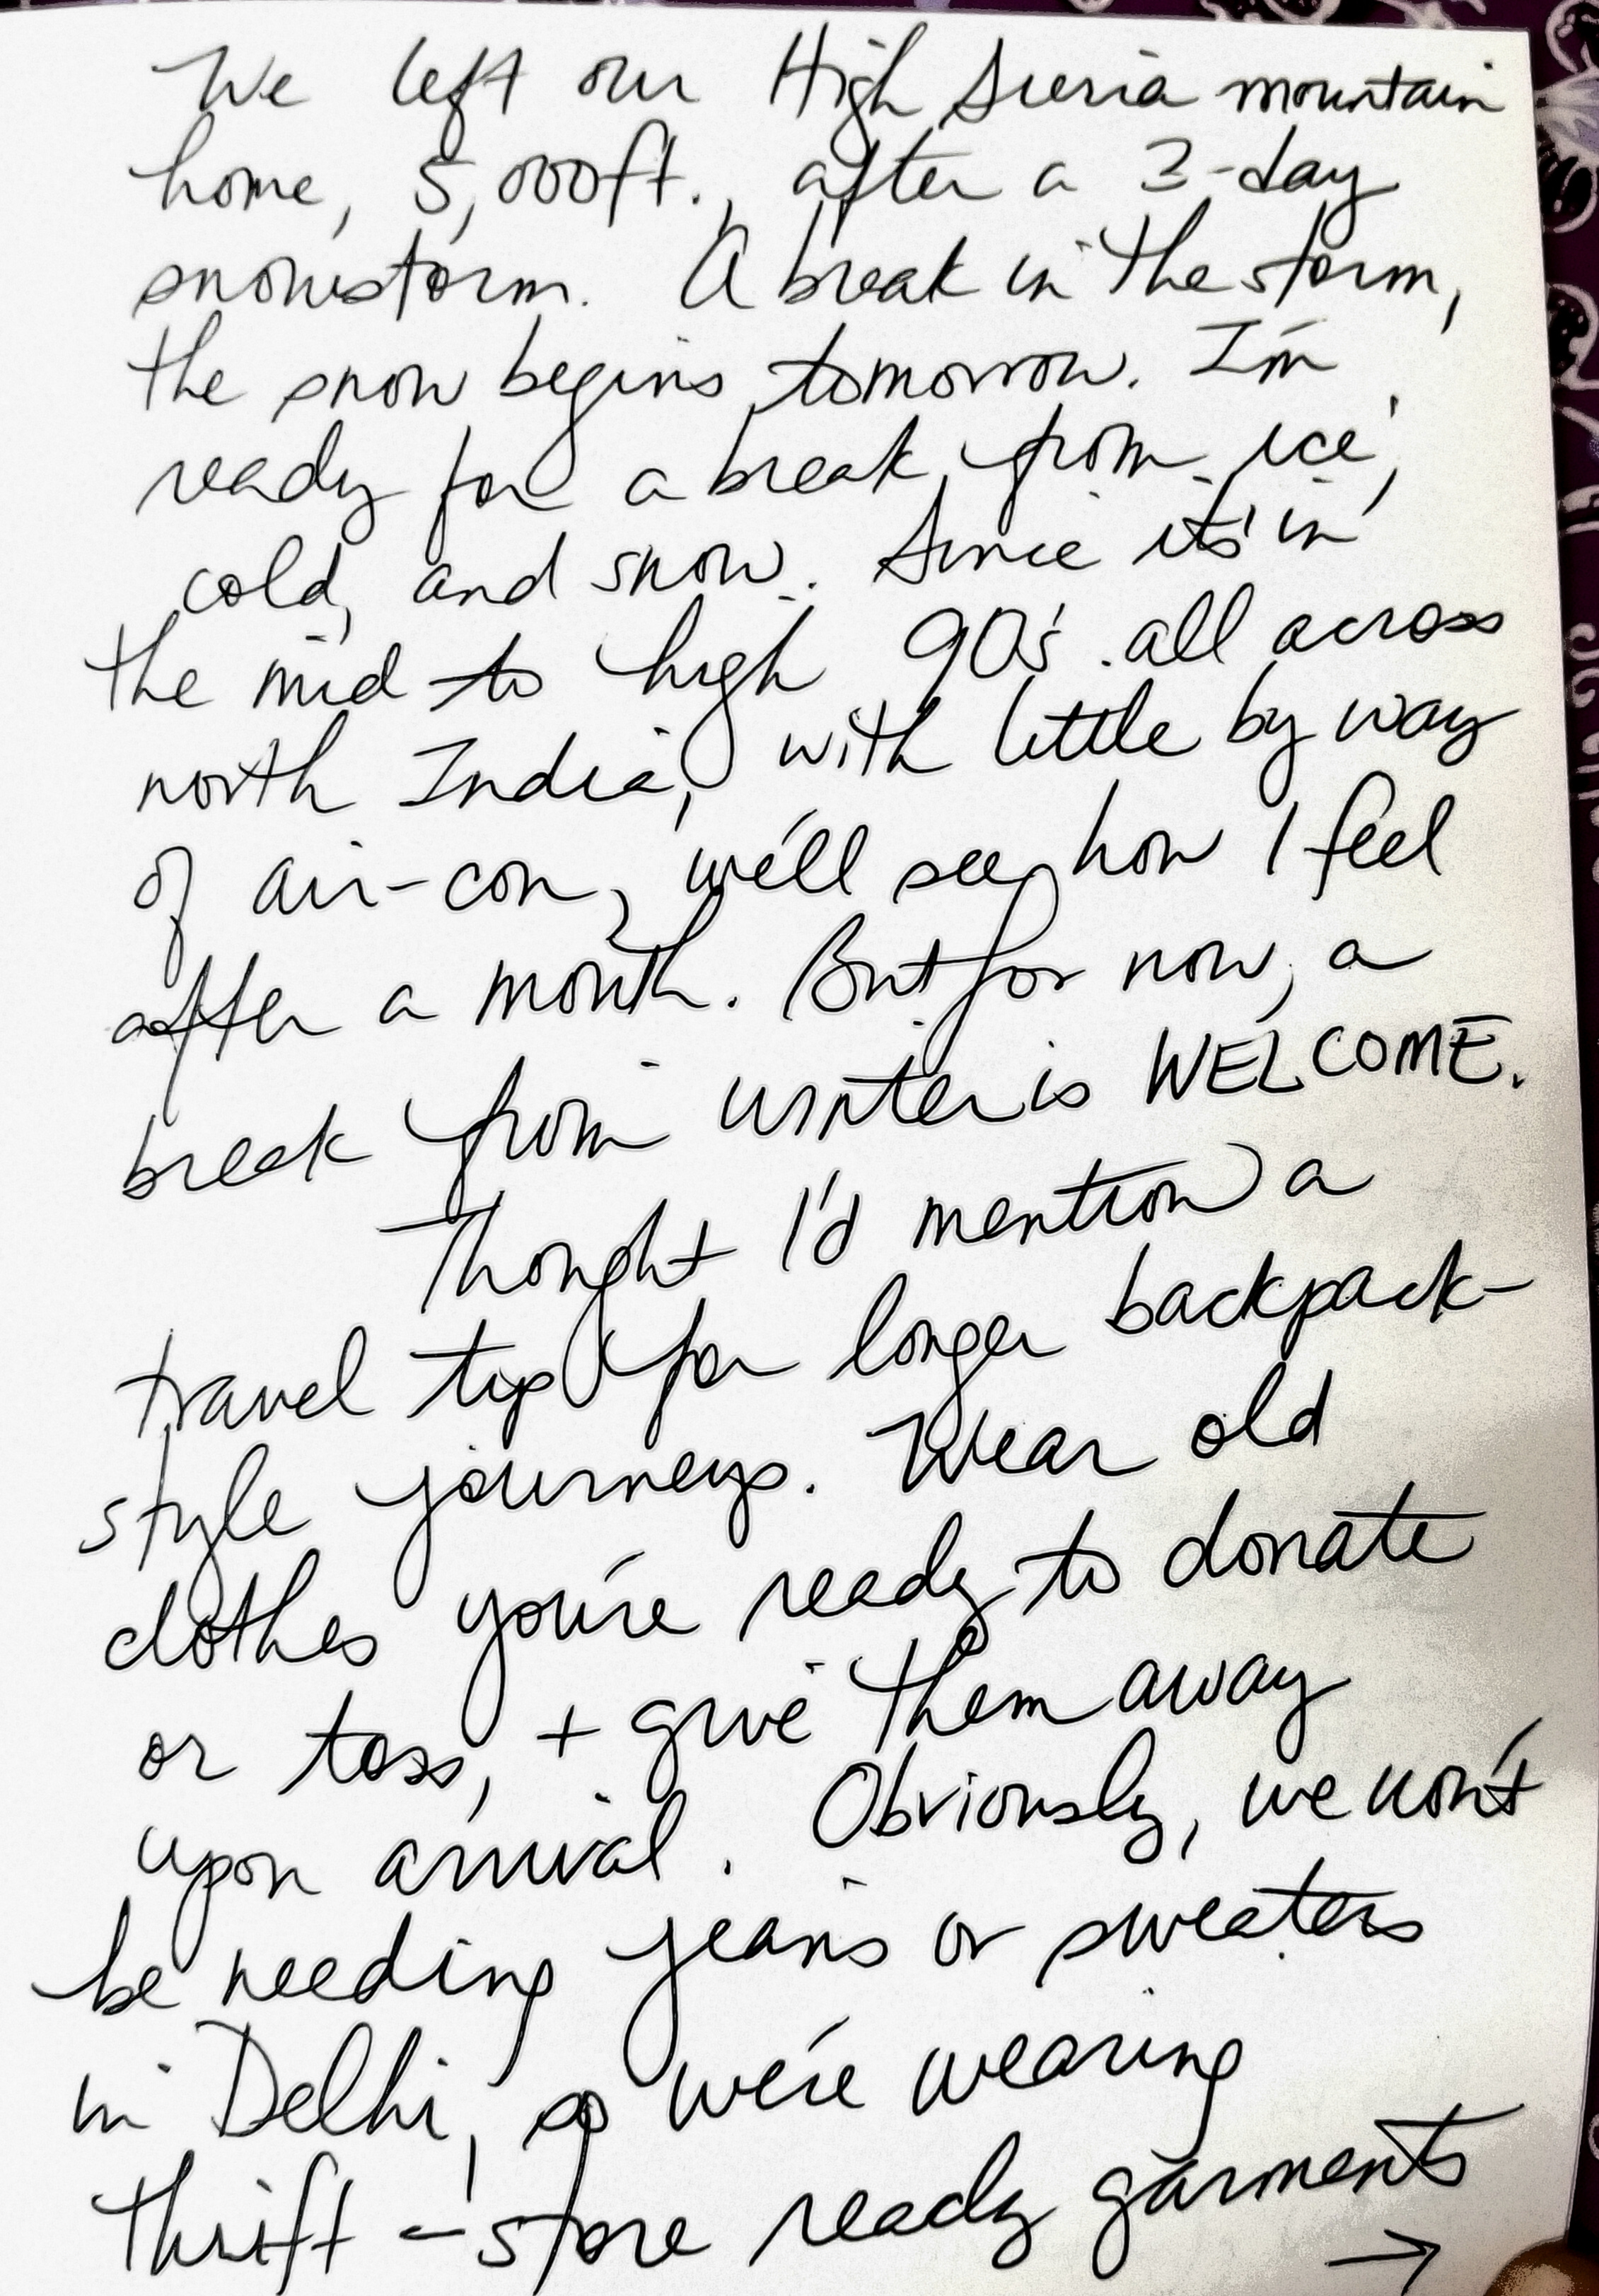 We left our High Sierra mountain
home, 5,000ft., after a 3-day
snowstorm. A break in the storm,
the snow begins tomorrow. I'm
ready for a break from ice,
cold, and snow. Since it's in
the mid to high 90's all across
north India, with little by way
of air-con, we'll see how I feel
after a month. But for now, a
break from winter is WELCOME.
Thought I'd mention a
travel tip for longer backpack-
style journeys. Wear old
clothes you're ready to donate
or toss, + give them away
upon arrival. Obviously, we won't
be needing jeans or sweaters
in Delhi, so we're wearing
thrift-store ready garments
→